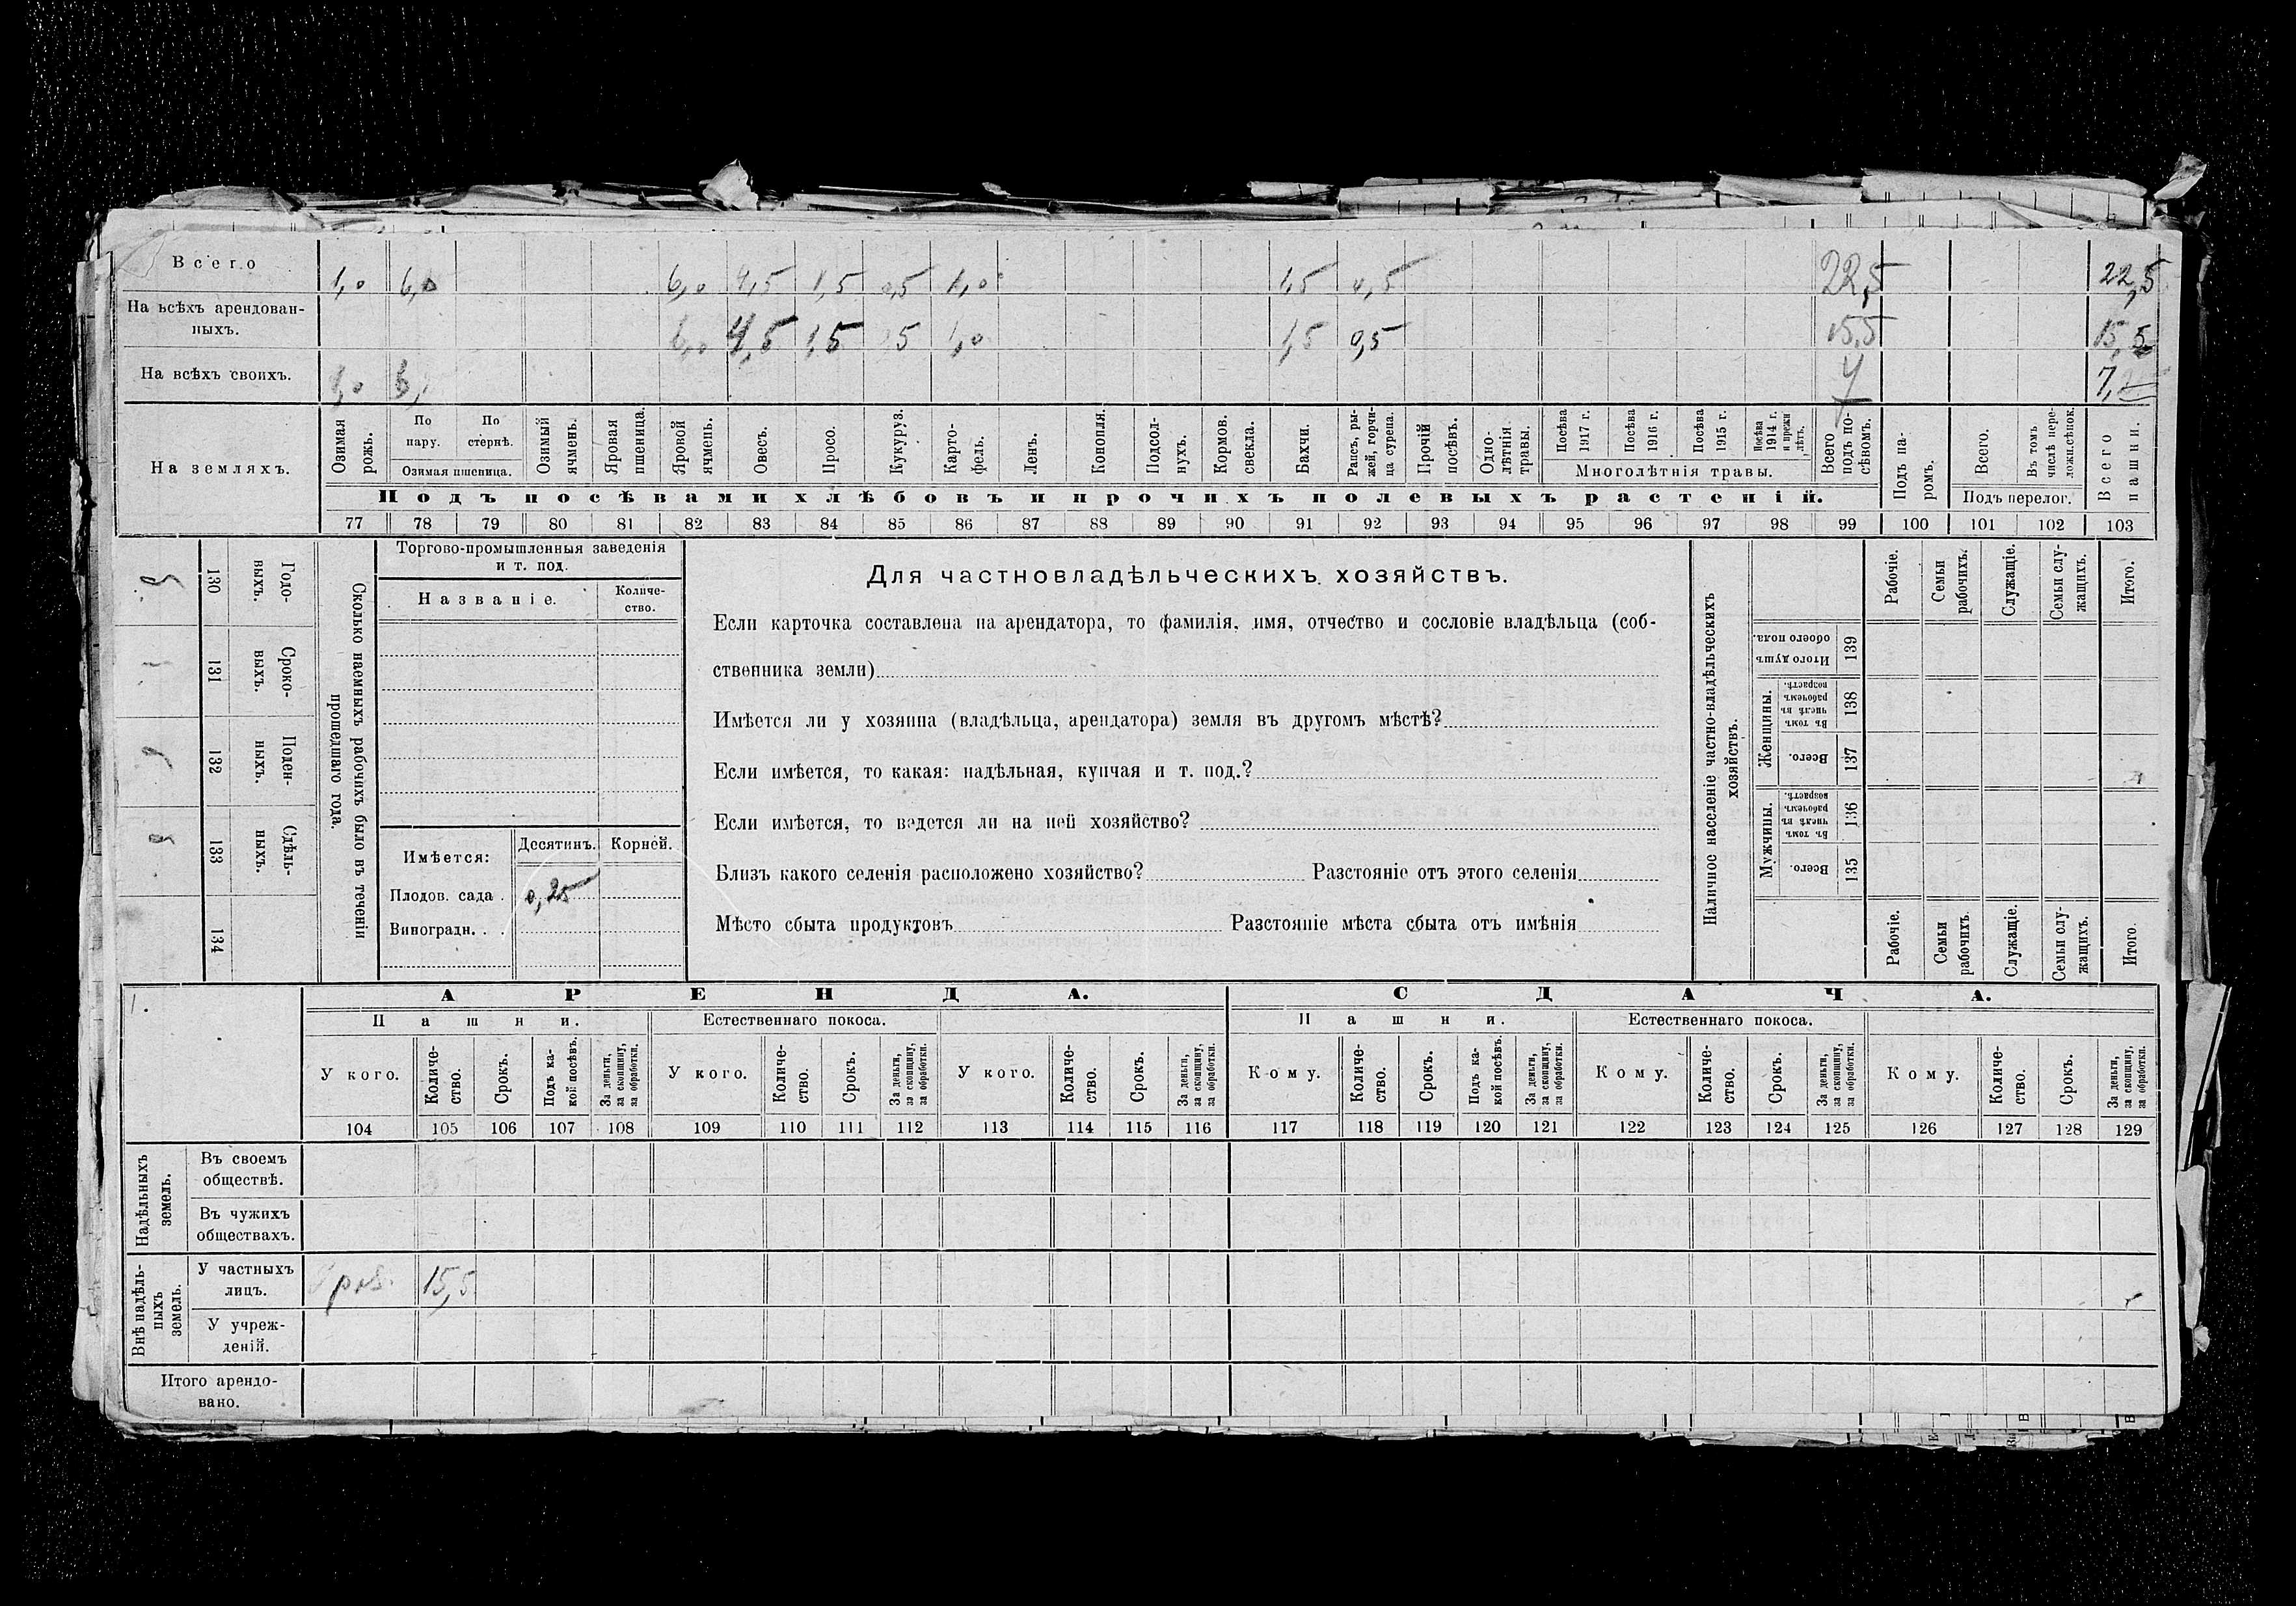 Всего 1,0 6,0 6,0 4,5 1,5 0,5 1,0 1,5 0,5 22,5 22,5
На всѣхъ арендован-
ныхъ. 6,0 4,5 1,5 0,5 1,0 1,5 0,5 15,5 15,5
На всѣхъ своихъ. 1,0 6, 7 7,
На земляхъ.
Озимая рожь.
По пару.
По стернѣ.
Озимая пшеница.
Озимый ячмень.
Яровая пшеница.
Яровой ячмень.
Овесъ.
Просо.
Кукуруз.
Карто-
фель.
Ленъ.
Конопля.
Подсол-
нухъ.
Кормов. свекла.
Бахчи.
Рапсъ, ры-
жей, горчи-
ца сурепа.
Прочій посѣвъ.
Одно-
лѣтнія травы.
Посѣва 1917 г.
Посѣва 1916 г.
Посѣва 1915 г.
Посѣва 1914 г. и прежн лѣтъ.
Многолѣтнія травы.
Всего подъ по-
сѣвомъ.
Подъ па-
ромъ.
Всего.
Въ томъ числѣ пере-
ложн.сѣнок.
Подъ перелог.
Всего пашни.
Подъ посѣвами хлѣбовъ и прочихъ полевыхъ растеній.
77 78 79 80 81 82 83 84 85 86 87 88 89 90 91 92 93 94 95 96 97 98 99 100 101 102 103
130 Годо-
выхъ.
131 Сроко-
выхъ.
132 Поден-
ныхъ.
133 Сдѣль-
ныхъ.
134
Сколько наемныхъ рабочихъ было въ теченіи
прошедшаго года.
Торгово-промышленныя заведенія
и т. под.
Названіе.
Количе-
ство.
Имѣется:
Десятинъ.
Корней.
Плодов. сада . 0,25
Виноградн. . .
Для частновладѣльческихъ хозяйствъ.
Если карточка составлена на арендатора, то фамилія, имя, отчество и сословіе владѣльца (соб-
ственника земли)
Имѣется ли у хозяина (владѣльца, арендатора) земля въ другомъ мѣстѣ?
Если имѣется, то какая: надѣльная, купчая и т. под.?
Если имѣется, то ведется ли на ней хозяйство?
Близъ какого селенія расположено хозяйство? Разстояніе отъ этого селенія
Мѣсто сбыта продуктовъ Разстояніе мѣста сбыта отъ имѣнія
Наличное населеніе частно-владѣльческихъ
хозяйствъ.
Итого душъ обоего пола. 139
Женщины.
Въ томъ числѣ въ рабочемъ возрастѣ. 138
Всего. 137
Мужчины.
Въ томъ числѣ въ рабочемъ возрастѣ. 136
Всего. 135
Рабочіе.
Семьи рабочихъ.
Служащіе.
Семьи слу-
жащихъ.
Итого.
Рабочіе.
Семьи рабочихъ.
Служащіе.
Семьи слу-
жащихъ.
Итого.
1.
АРЕНДА.
СДАЧА.
Пашни.
Естественнаго покоса.
Пашни.
Естественнаго покоса.
У кого.
Количе-
ство.
Срокъ.
Подъ ка-
кой посѣвъ.
За деньги, за скопщину, за обработки.
У кого.
Количе-
ство.
Срокъ.
За деньги, за скопщину, за обработки.
У кого.
Количе-
ство.
Срокъ.
За деньги, за скопщину, за обработки.
Кому.
Количе-
ство.
Срокъ.
Подъ ка-
кой посѣвъ.
За деньги, за скопщину, за обработки.
Кому.
Количе-
ство.
Срокъ.
За деньги, за скопщину, за обработки.
Кому.
Количе-
ство.
Срокъ.
За деньги, за скопщину, за обработки.
104 105 106 107 108 109 110 111 112 113 114 115 116 117 118 119 120 121 122 123 124 125 126 127 128 129
Надѣльныхъ земель.
Въ своемъ
обществѣ.
Въ чужихъ
обществахъ.
Внѣ надѣль-
ныхъ земель.
У частныхъ
лицъ. 15,5
У учреж-
деній.
Итого арендо-
вано.